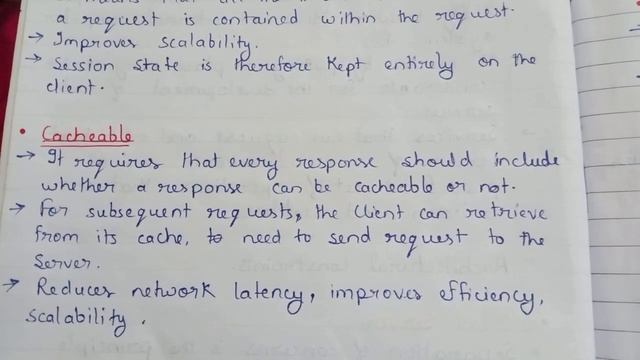 a request is contained within the request.
→ Improves scalability.
→ Session state is therefore kept entirely on the
client.
• Cacheable
→ It requires that every response should include
whether a response can be cacheable or not.
→ For subsequent requests, the client can retrieve
from its cache, to need to send request to the
server.
→ Reduces network latency, improves efficiency,
scalability.